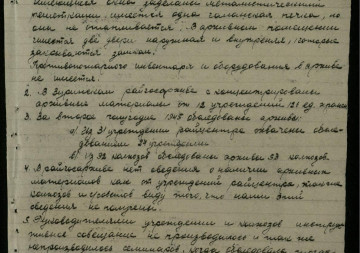 решетками, имеется одна голанская печка, но
она не отапливается. В архивном помещении
имеются две двери наружная и внутренняя, которые
закрываются замком.
Противопожарного инвентаря и оборудования в архиве
не имеется.
2. В райгосархиве сконцентрированы
архивные материалы от 12 учреждений 121 ед. хранен
3. За второе полугодие 1945 обследовано архивы:
а) Из 31 учреждений райцентра охвачены обсле-
дованием 21 учреждение
б) Из 92 колхозов обследованы архивы 53 колхозов.
4. В райгосархиве нет сведения о наличии архивных
материалов как от учреждений райцентра, также
колхозов и советов виду того, что нами эти
сведения не получены.
5. Руководителями учреждений и колхозов инструк-
тивное совещание не производилось и также не
производилось семинаров, когда обследовались